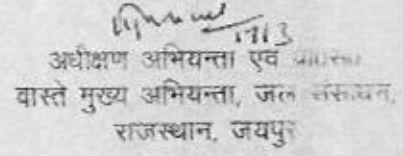 अधीक्षण अभियन्ता एवं
वास्ते मुख्य अभियन्ता, जल संसाधन,
राजस्थान, जयपुर